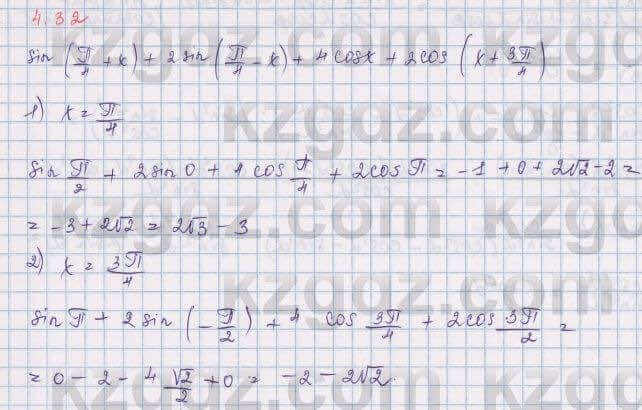 4.32
sin (π/4 + x) + 2 sin (π/4 - x) + 4 cos x + 2 cos (x + 3π/4)
1) x = π/4
sin π/2 + 2 sin 0 + 4 cos π/4 + 2 cos π = -1 + 0 + 2√2 - 2 =
= -3 + 2√2 = 2√3 - 3
2) x = 3π/4
sin π + 2 sin (-π/2) + 4 cos 3π/4 + 2 cos 3π/2 =
= 0 - 2 - 4 √2/2 + 0 = -2 - 2√2.
kzgdz.com
kzgdz.com
kzgdz.com
kzgdz.com